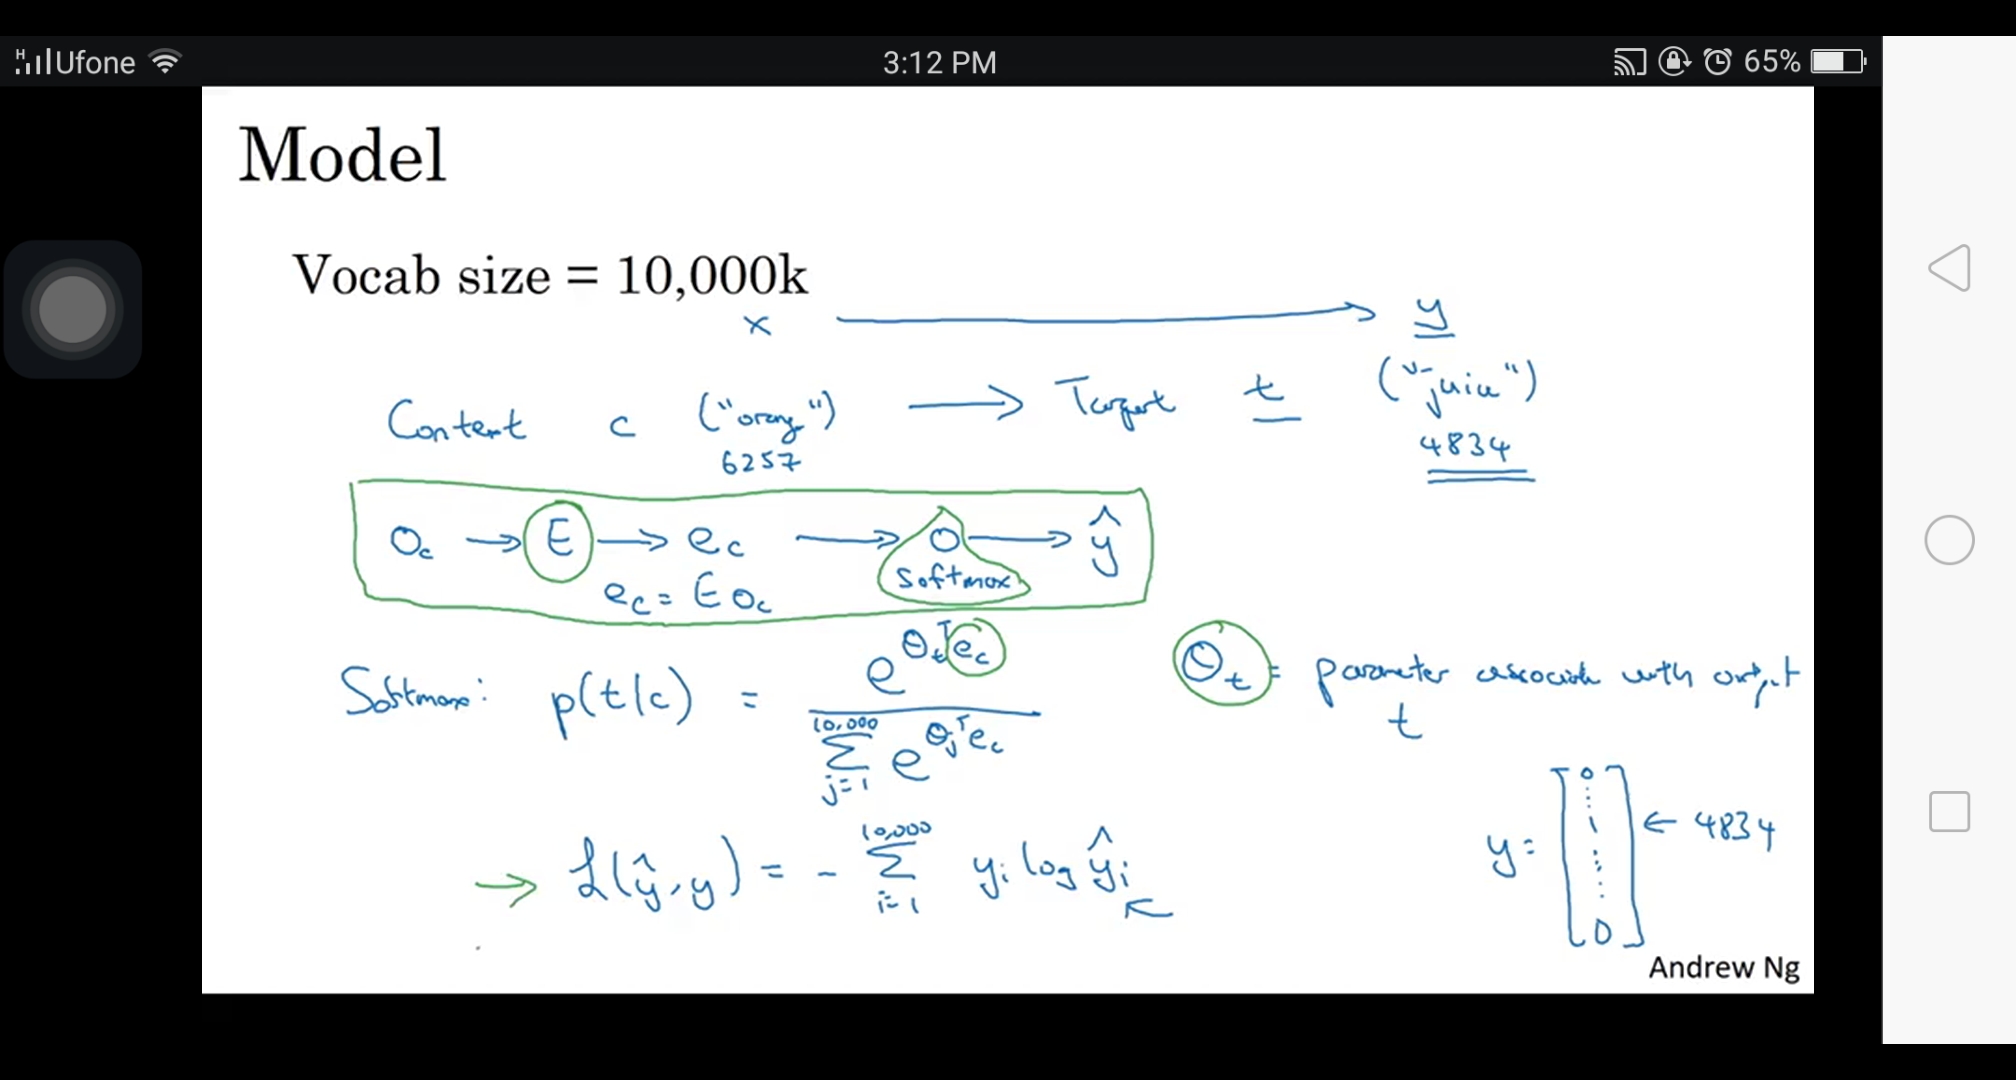 H Ufone 3:12 PM 65%
Model
Vocab size = 10,000k
x → y
Context c ("orange") → Target t ("juice")
6257 4834
O_c → E → e_c → o → ŷ
softmax
e_c = E o_c
Softmax: p(t|c) = e^{θ_t^T e_c} / Σ_{j=1}^{10,000} e^{θ_j^T e_c} θ_t = parameter associate with output t
ℒ(ŷ, y) = - Σ_{i=1}^{10,000} y_i log ŷ_i
y = [0 ⋮ 1 ⋮ 0] ← 4834
Andrew Ng